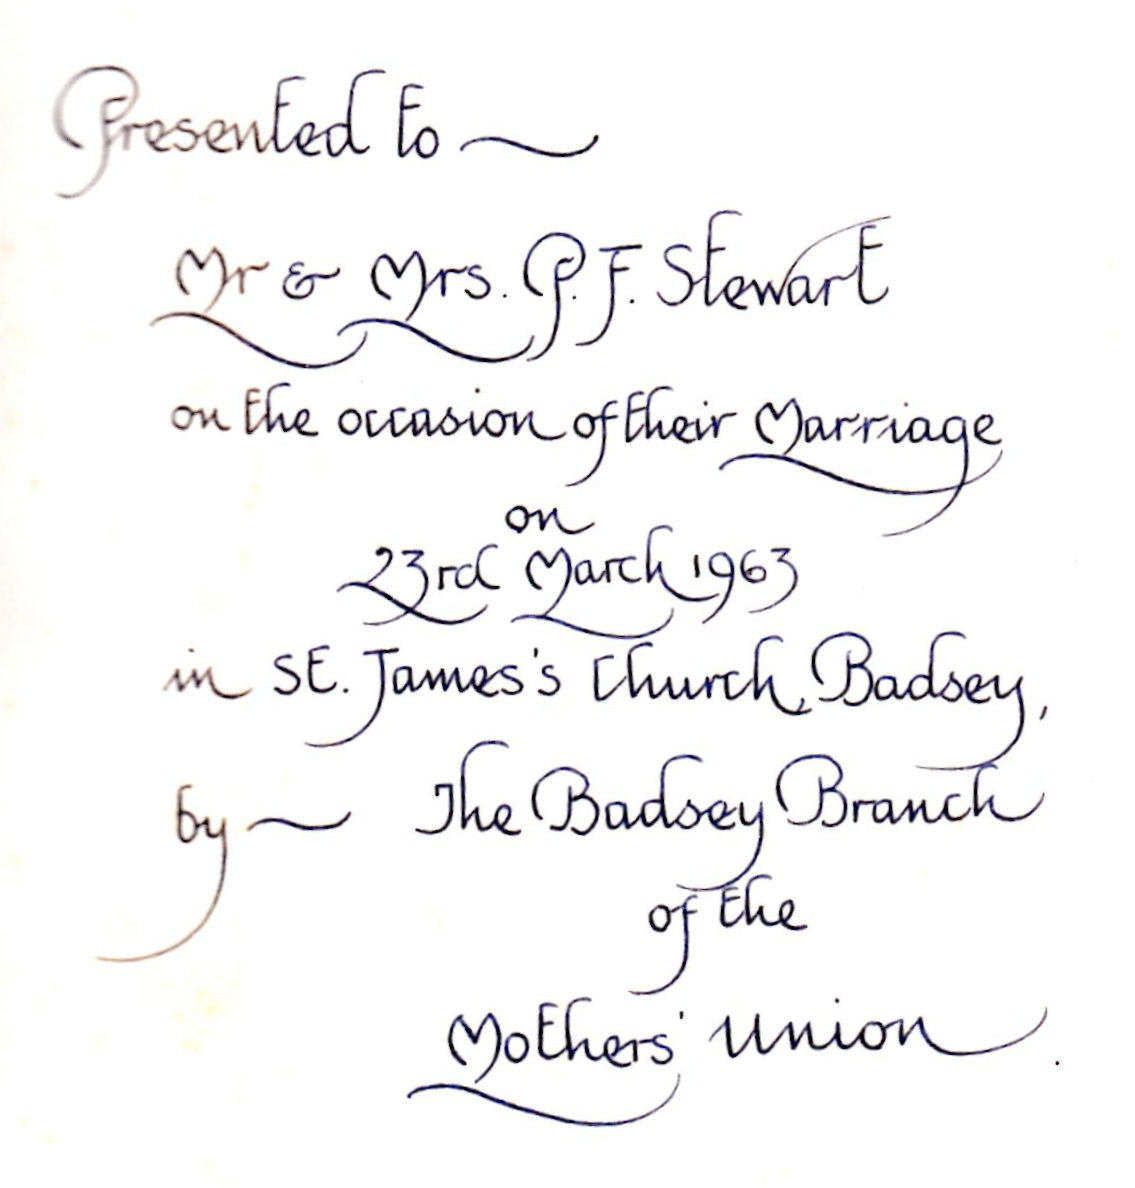 Presented to ~
Mr & Mrs. P. F. Stewart
on the occasion of their Marriage
on
23rd March 1963
in St. James's Church, Badsey,
by ~ The Badsey Branch
of the
Mothers' Union.